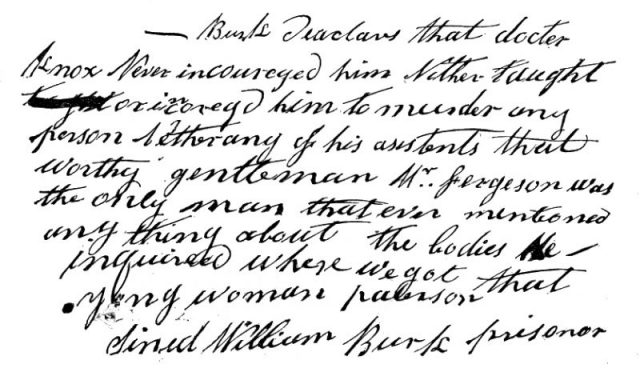 — Burk deaclars that docter
Knox Never incoureged him Nither taught
or incoregd him to murder any
person Nether any of his asistents that
worthy gentleman Mr. fergeson was
the only man that ever mentioned
any thing about the bodies He –
inquired where we got that
yong woman paterson
Sined William Burk prisoner